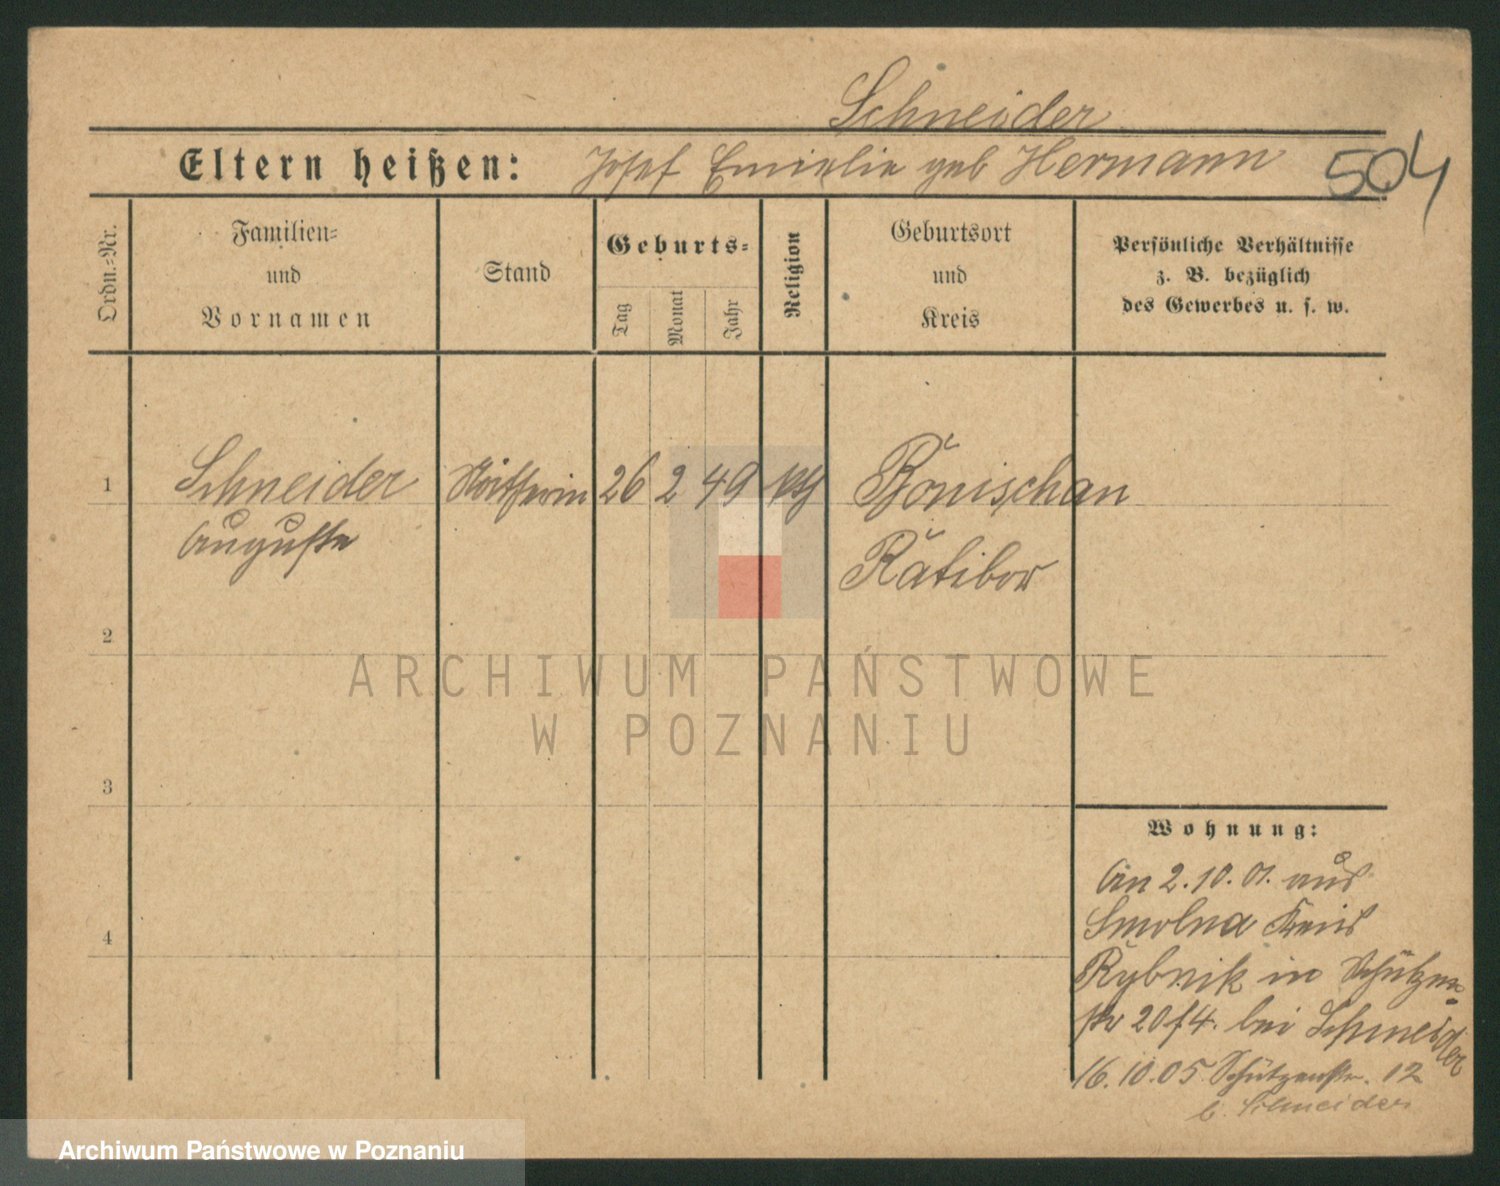 Schneider
Eltern heißen: Josef Emielie geb Hermann 504
Ordn.-Nr.
Familien-
und
Vornamen
Stand
Geburts-
Tag
Monat
Jahr
Religion
Geburtsort
und
Kreis
Persönliche Verhältnisse
z. B. bezüglich
des Gewerbes u. s. w.
1 Schneider 26 2 49 Bonischau
Auguste Ratibor
2
3
4
Wohnung:
An 2.10.01. aus
Smolna Kreis
Rybnik in Schützen-
str 20 f 4. bei Schneider
16.10.05 Schützenstr. 12
b. Schneider
ARCHIWUM PAŃSTWOWE
W POZNANIU
Archiwum Państwowe w Poznaniu